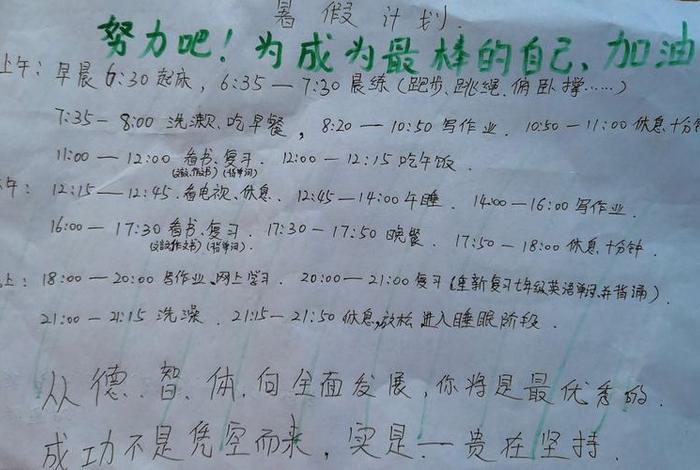 暑假计划.
努力吧！为成为最棒的自己、加油
上午：早晨6:30起床，6:35—7:30晨练（跑步、跳绳、俯卧撑……）
7:35—8:00 洗漱、吃早餐，8:20—10:50写作业. 10:50—11:00休息十分钟
11:00—12:00 看书、复习. 12:00—12:15吃午饭.
(作文书) (背单词)
午：12:15—12:45.看电视、休息. 12:45—14:00午睡. 14:00—16:00写作业.
16:00—17:30看书、复习. 17:30—17:50晚餐. 17:50—18:00休息十分钟.
(作文书) (背单词).
上：18:00—20:00写作业、网上学习. 20:00—21:00复习（重新复习七年级英语单词，并背诵）.
21:00—21:15 洗澡. 21:15—21:50休息，放松进入睡眠阶段.
从德、智、体、向全面发展，你将是最优秀的.
成功不是凭空而来，实是一贵在坚持.